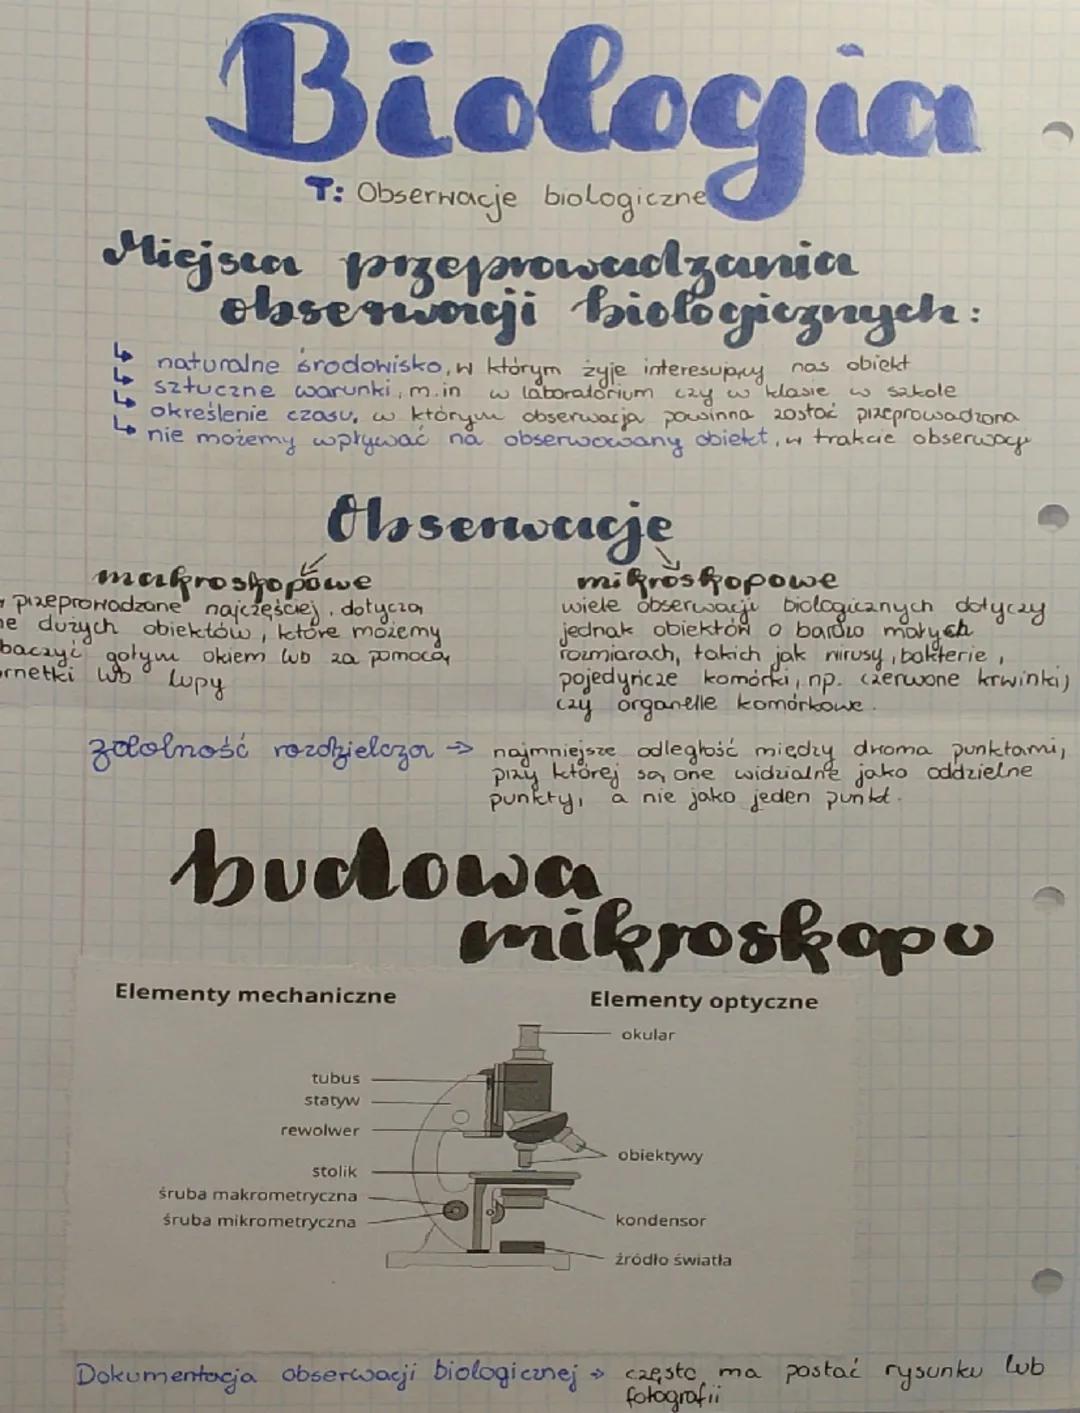 Biologia
T: Obserwacje biologiczne
Miejsca przeprowadzania
obserwacji biologicznych:
↳ naturalne środowisko, w którym żyje interesujący nas obiekt
↳ sztuczne warunki, m.in w laboratorium czy w klasie w szkole
↳ określenie czasu, w którym obserwacja powinna zostać przeprowadzona
↳ nie możemy wpływać na obserwowany obiekt, w trakcie obserwacji
Obserwacje
makroskopowe
przeprowadzane najczęściej, dotyczą
dużych obiektów, które możemy
baczyć gołym okiem lub za pomocą
rnetki lub lupy
mikroskopowe
wiele obserwacji biologicznych dotyczy
jednak obiektów o bardzo małych
rozmiarach, takich jak wirusy, bakterie,
pojedyncze komórki, np. czerwone krwinki)
czy organelle komórkowe.
zdolność rozdzielcza → najmniejsze odległość między dwoma punktami,
przy której są one widzialne jako oddzielne
punkty, a nie jako jeden punkt.
budowa
mikroskopu
Elementy mechaniczne
Elementy optyczne
okular
tubus
statyw
rewolwer
obiektywy
stolik
śruba makrometryczna
śruba mikrometryczna
kondensor
źródło światła
Dokumentacja obserwacji biologicznej → często ma postać rysunku lub
fotografii